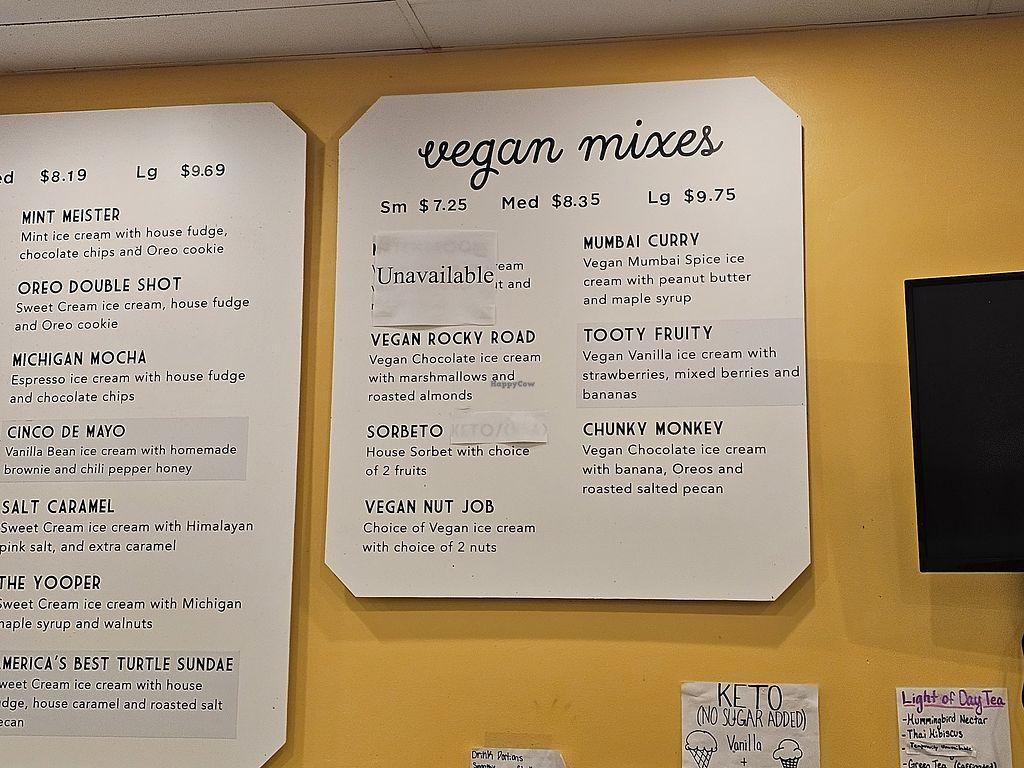 $8.19 Lg $9.69
MINT MEISTER
Mint ice cream with house fudge,
chocolate chips and Oreo cookie
OREO DOUBLE SHOT
Sweet Cream ice cream, house fudge
and Oreo cookie
MICHIGAN MOCHA
Espresso ice cream with house fudge
and chocolate chips
CINCO DE MAYO
Vanilla Bean ice cream with homemade
brownie and chili pepper honey
SALT CARAMEL
Sweet Cream ice cream with Himalayan
pink salt, and extra caramel
THE YOOPER
Sweet Cream ice cream with Michigan
maple syrup and walnuts
AMERICA'S BEST TURTLE SUNDAE
Sweet Cream ice cream with house
fudge, house caramel and roasted salt
pecan
vegan mixes
Sm $7.25 Med $8.35 Lg $9.75
Unavailable
and
VEGAN ROCKY ROAD
Vegan Chocolate ice cream
with marshmallows and
roasted almonds
SORBETO KETO/
House Sorbet with choice
of 2 fruits
VEGAN NUT JOB
Choice of Vegan ice cream
with choice of 2 nuts
MUMBAI CURRY
Vegan Mumbai Spice ice
cream with peanut butter
and maple syrup
TOOTY FRUITY
Vegan Vanilla ice cream with
strawberries, mixed berries and
bananas
CHUNKY MONKEY
Vegan Chocolate ice cream
with banana, Oreos and
roasted salted pecan
HappyCow
Drink Potions
KETO
(NO SUGAR ADDED)
Vanilla
+
Light of Day Tea
-Hummingbird Nectar
-Thai Hibiscus
Temporarily Unavailable
-Green Tea (Caffeinated)